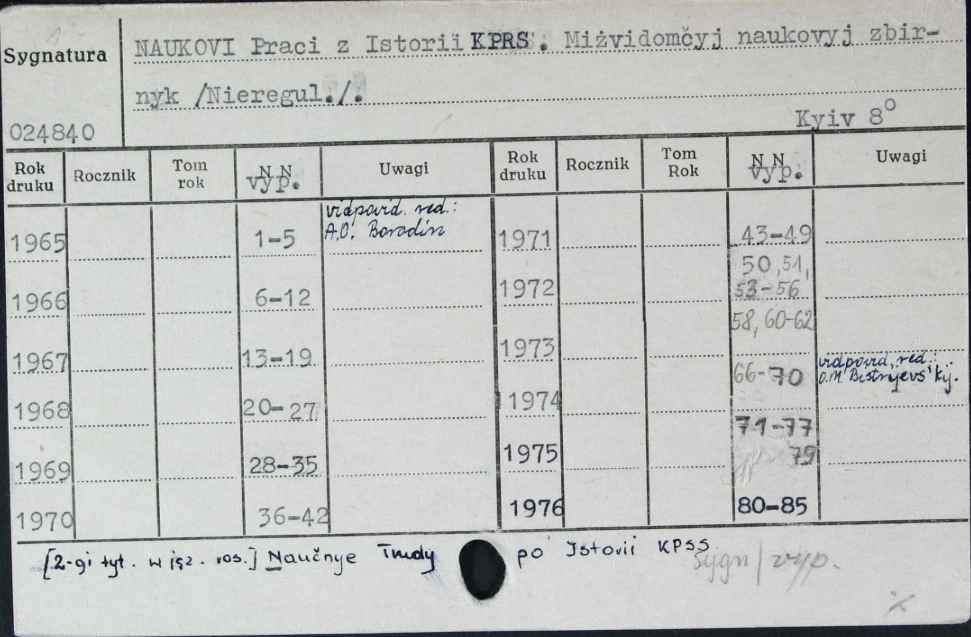 Sygnatura
NAUKOVI Praci z Istorii KPRS. Miżvidomčyj naukovyj zbir-
nyk /Nieregul./.
024840
Kyiv 8°
Rok druku Rocznik Tom rok N N vyp. Uwagi Rok druku Rocznik Tom Rok N N vyp. Uwagi
vidpovid. red.:
1965 1-5 A.O. Borodin 1971 43-49
50, 51,
1966 6-12 1972 53-56
58, 60-62
1967 13-19 1973
66-70 vidpovid. red.:
O.M. Bistryevs'kij.
1968 20-27 1974
71-77
1969 28-35 1975 79
1970 36-42 1976 80-85
[2-gi tyt. w jęz. ros.] Naučnye Trudy po Istorii KPSS
sygn/vyp.